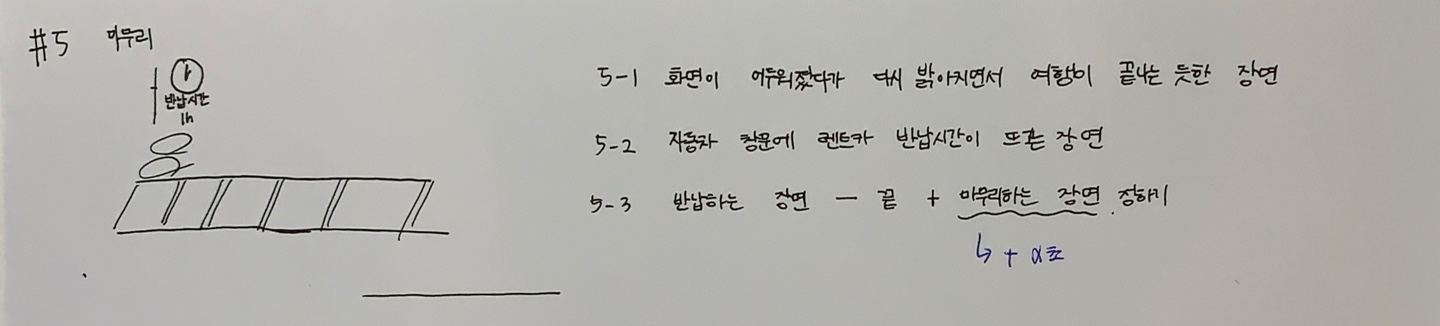 #5 마무리
반납시간
1h
5-1 화면이 어두워졌다가 다시 밝아지면서 여행이 끝나는 듯한 장면
5-2 자동차 창문에 렌트카 반납시간이 뜨는 장면
5-3 반납하는 장면 - 끝 + 마무리하는 장면 정하기
↳ + α초